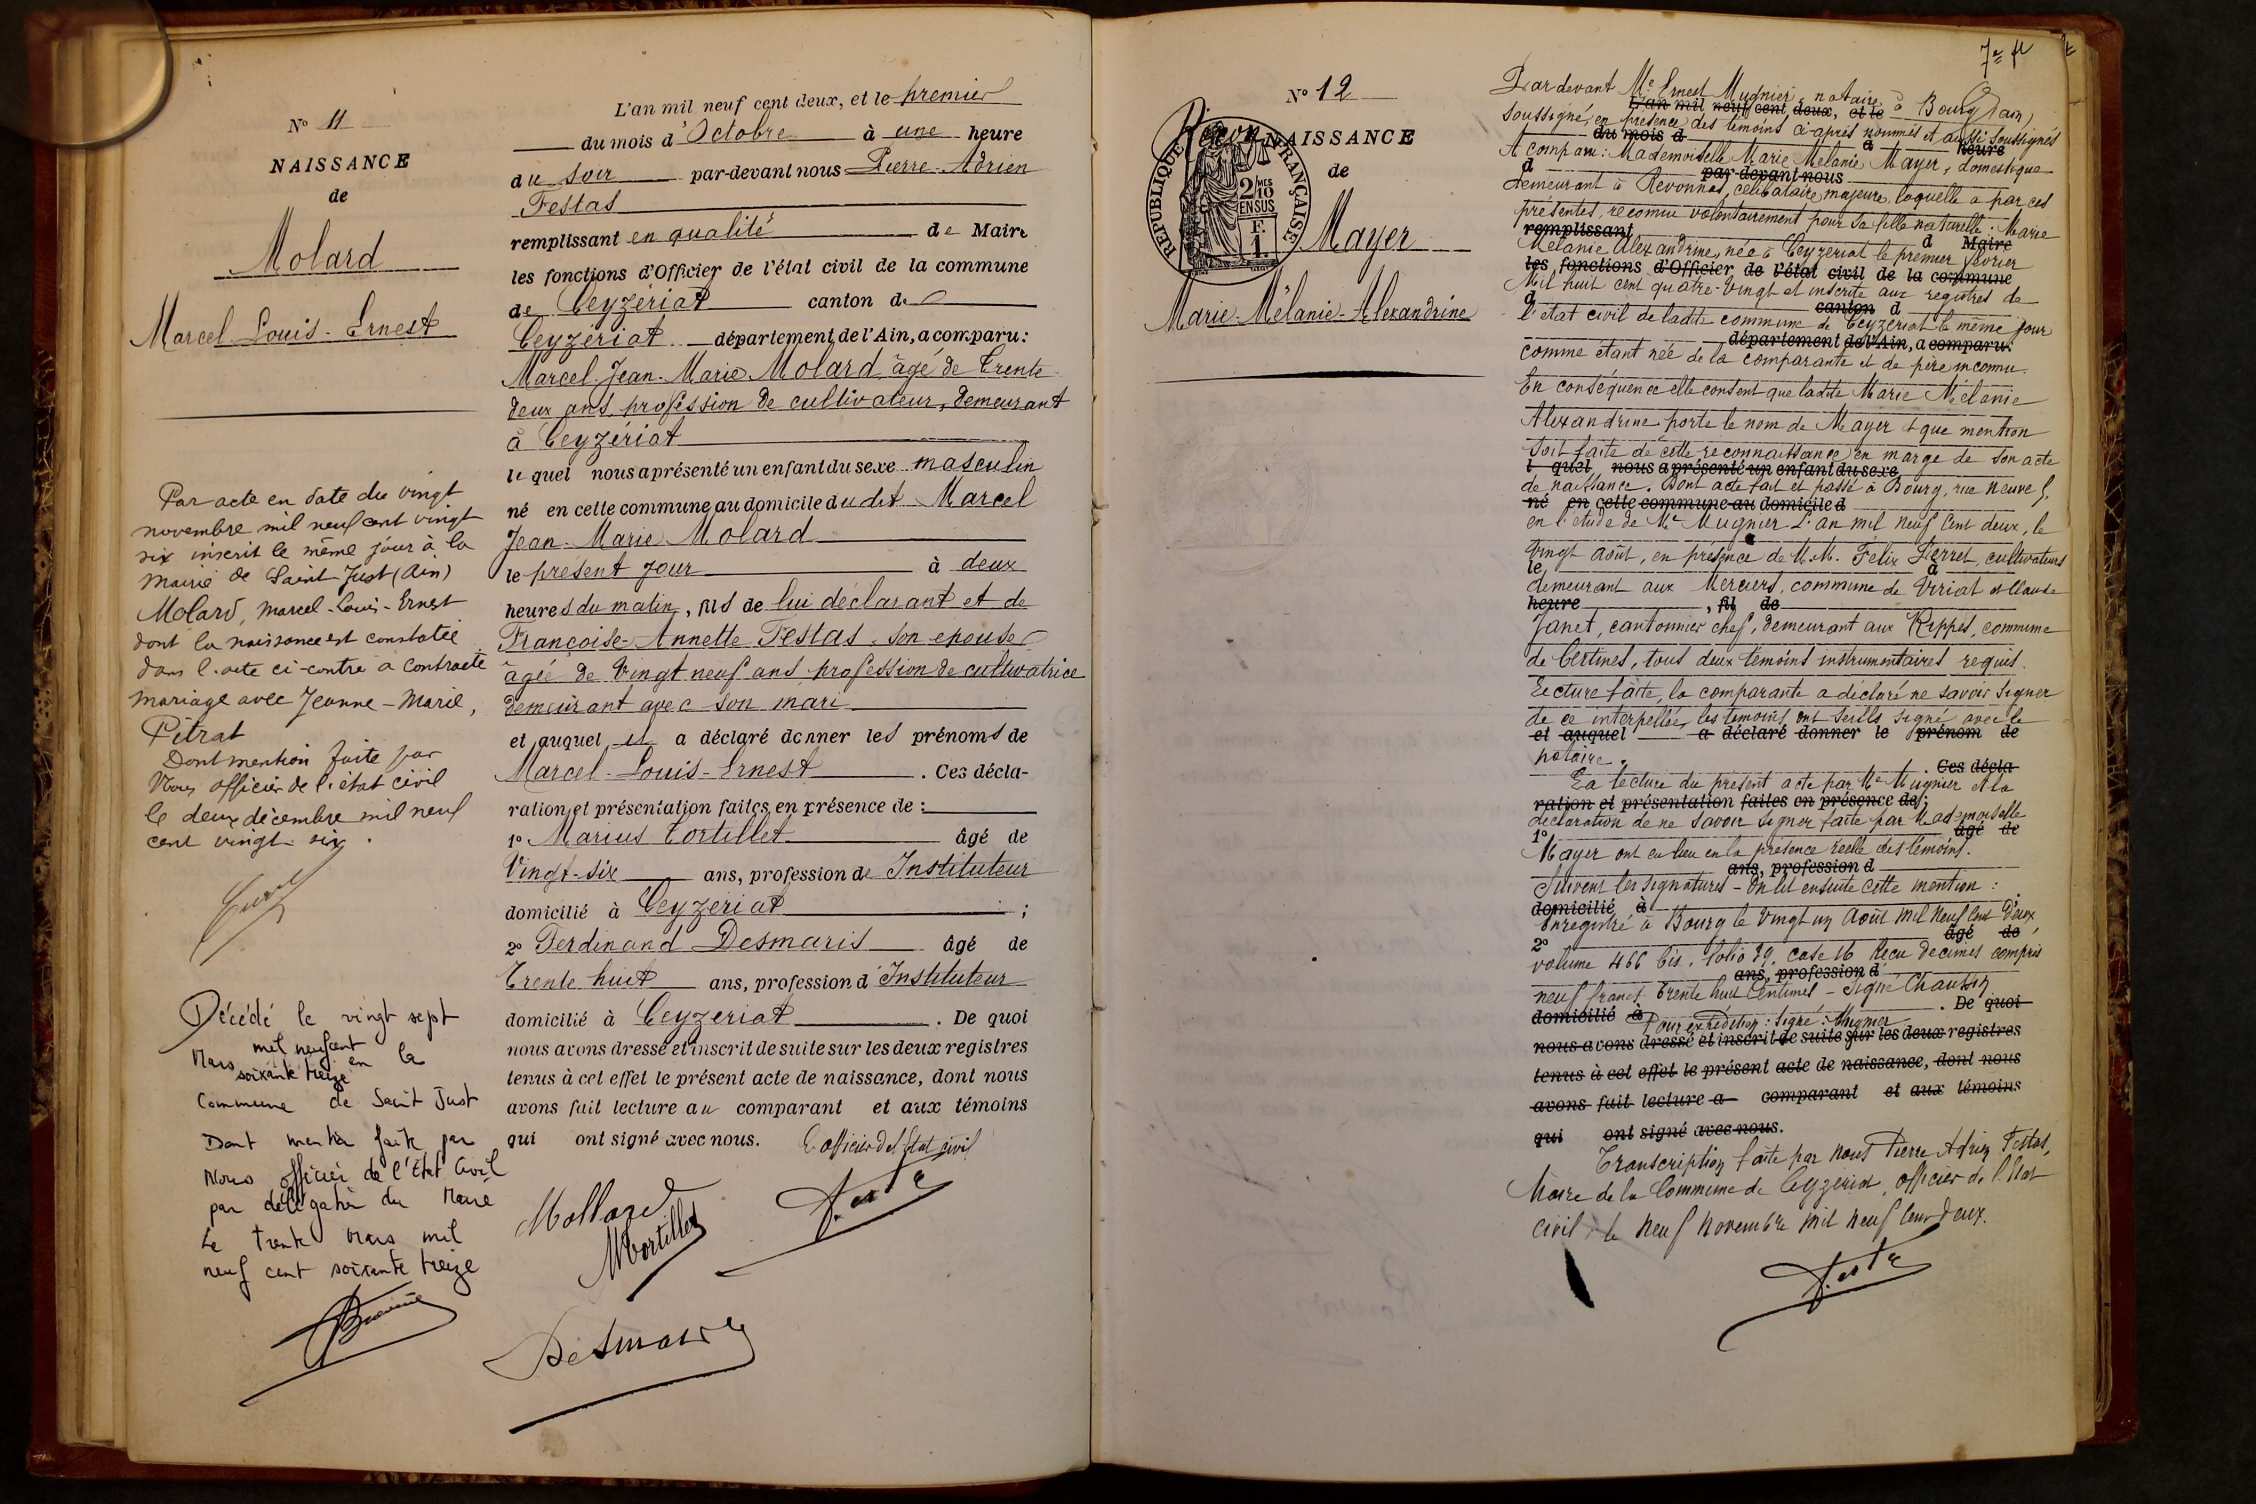 N° 11
NAISSANCE
de
Molard
Marcel Louis-Ernest
Par acte en date du vingt
novembre mil neuf cent vingt
six inscrit le même jour à la
mairie de Saint Just (Ain)
Molard, Marcel-Louis-Ernest
dont la naissance est constatée
dans l'acte ci-contre a contracté
mariage avec Jeanne-Marie,
Pitrat
Dont mention faite par
Nous officier de l'état civil
le deux décembre mil neuf
cent vingt-six.
Décédé le vingt sept
mil neuf cent
Mars en la
soixante treize
Commune de Saint Just
Dont mention faite par
Nous officier de l'Etat Civil
par délégation du Maire
Le trente Mars mil
neuf cent soixante treize
L'an mil neuf cent deux, et le premier
du mois d'Octobre à une heure
du soir par-devant nous Pierre-Adrien
Festas
remplissant en qualité de Maire
les fonctions d'Officier de l'état civil de la commune
de Ceyzériat canton de
Ceyzériat département de l'Ain, a comparu:
Marcel-Jean-Marie Molard âgé de Trente
deux ans profession de cultivateur, demeurant
à Ceyzériat
lequel nous a présenté un enfant du sexe masculin
né en cette commune au domicile du dit Marcel
Jean-Marie Molard
le présent jour à deux
heures du matin, fils de lui déclarant et de
Françoise-Annette Festas son épouse
âgée de Vingt neuf ans profession de cultivatrice
demeurant avec son mari
et auquel il a déclaré donner les prénoms de
Marcel-Louis-Ernest. Ces décla-
ration et présentation faites en présence de:
1° Marius Tortillet âgé de
Vingt-six ans, profession de Instituteur
domicilié à Ceyzériat;
2° Ferdinand Desmaris âgé de
Trente huit ans, profession d'Instituteur
domicilié à Ceyzériat. De quoi
nous avons dressé et inscrit de suite sur les deux registres
tenus à cet effet le présent acte de naissance, dont nous
avons fait lecture au comparant et aux témoins
qui ont signé avec nous. L'officier de l'état civil
Mollard
MTortillet
Festa
Desmaris
N° 12
NAISSANCE
de
REPUBLIQUE FRANÇAISE
2/10 MES
EN SUS
F.
1.
Mayer
Marie-Mélanie-Alexandrine
7e
Par devant Me Ernest Mugnier, notaire à Bourg (Ain)
L'an mil neuf cent deux, et le
soussigné, en présence des témoins ci-après nommés et aussi soussignés
du mois d à heure
A comparu: Mademoiselle Marie Mélanie Mayer, domestique
d par-devant nous
demeurant à Revonnas, célibataire majeure, laquelle a par ces
présentes, reconnu volontairement pour sa fille naturelle: Marie
remplissant d Maire
Mélanie Alexandrine, née à Ceyzériat le premier février
les fonctions d'Officier de l'état civil de la commune
Mil huit cent quatre-vingt et inscrite aux registres de
d canton d
l'état civil de ladite commune de Ceyzériat le même jour
département de l'Ain, a comparu:
comme étant née de la comparante et de père inconnu.
En conséquence elle consent que ladite Marie Mélanie
Alexandrine porte le nom de Mayer et que mention
soit faite de cette reconnaissance en marge de son acte
l quel nous a présenté un enfant du sexe
de naissance. Dont acte fait et passé à Bourg, rue Neuve 5,
né en cette commune au domicile d
en l'étude de Me Mugnier L'an mil neuf cent deux, le
vingt août, en présence de M.M. Felix Perret, cultivateurs
le à
demeurant aux Merciers, commune de Viriat et Claude
heure, fil de
Janet, cantonnier chef, demeurant aux Rippes, commune
de Certines, tous deux témoins instrumentaires requis.
Lecture faite, la comparante a déclaré ne savoir signer
de ce interpellée, les témoins ont seuls signé avec le
et auquel a déclaré donner le prénom de
notaire.
Ces décla-
La lecture du présent acte par Me Mugnier et la
ration et présentation faites en présence de:
déclaration de ne savoir signer faite par Mademoiselle
1° âgé de
Mayer ont eu lieu en la présence réelle des témoins.
ans, profession d
Suivent les signatures - On lit ensuite cette mention:
domicilié à
Enregistré à Bourg le vingt un Août mil neuf cent deux,
2° âgé de
volume 466 bis, folio 29, case 16 Reçu décimes compris
ans, profession d
neuf francs trente huit centimes - signé Chaussin
domicilié à. De quoi
Pour expédition: signé: Mugnier
nous avons dressé et inscrit de suite sur les deux registres
tenus à cet effet le présent acte de naissance, dont nous
avons fait lecture a comparant et aux témoins
qui ont signé avec nous.
Transcription faite par nous Pierre Adrien Festas,
Maire de la Commune de Ceyzériat, officier de l'Etat
civil le neuf novembre mil neuf cent deux.
Festa